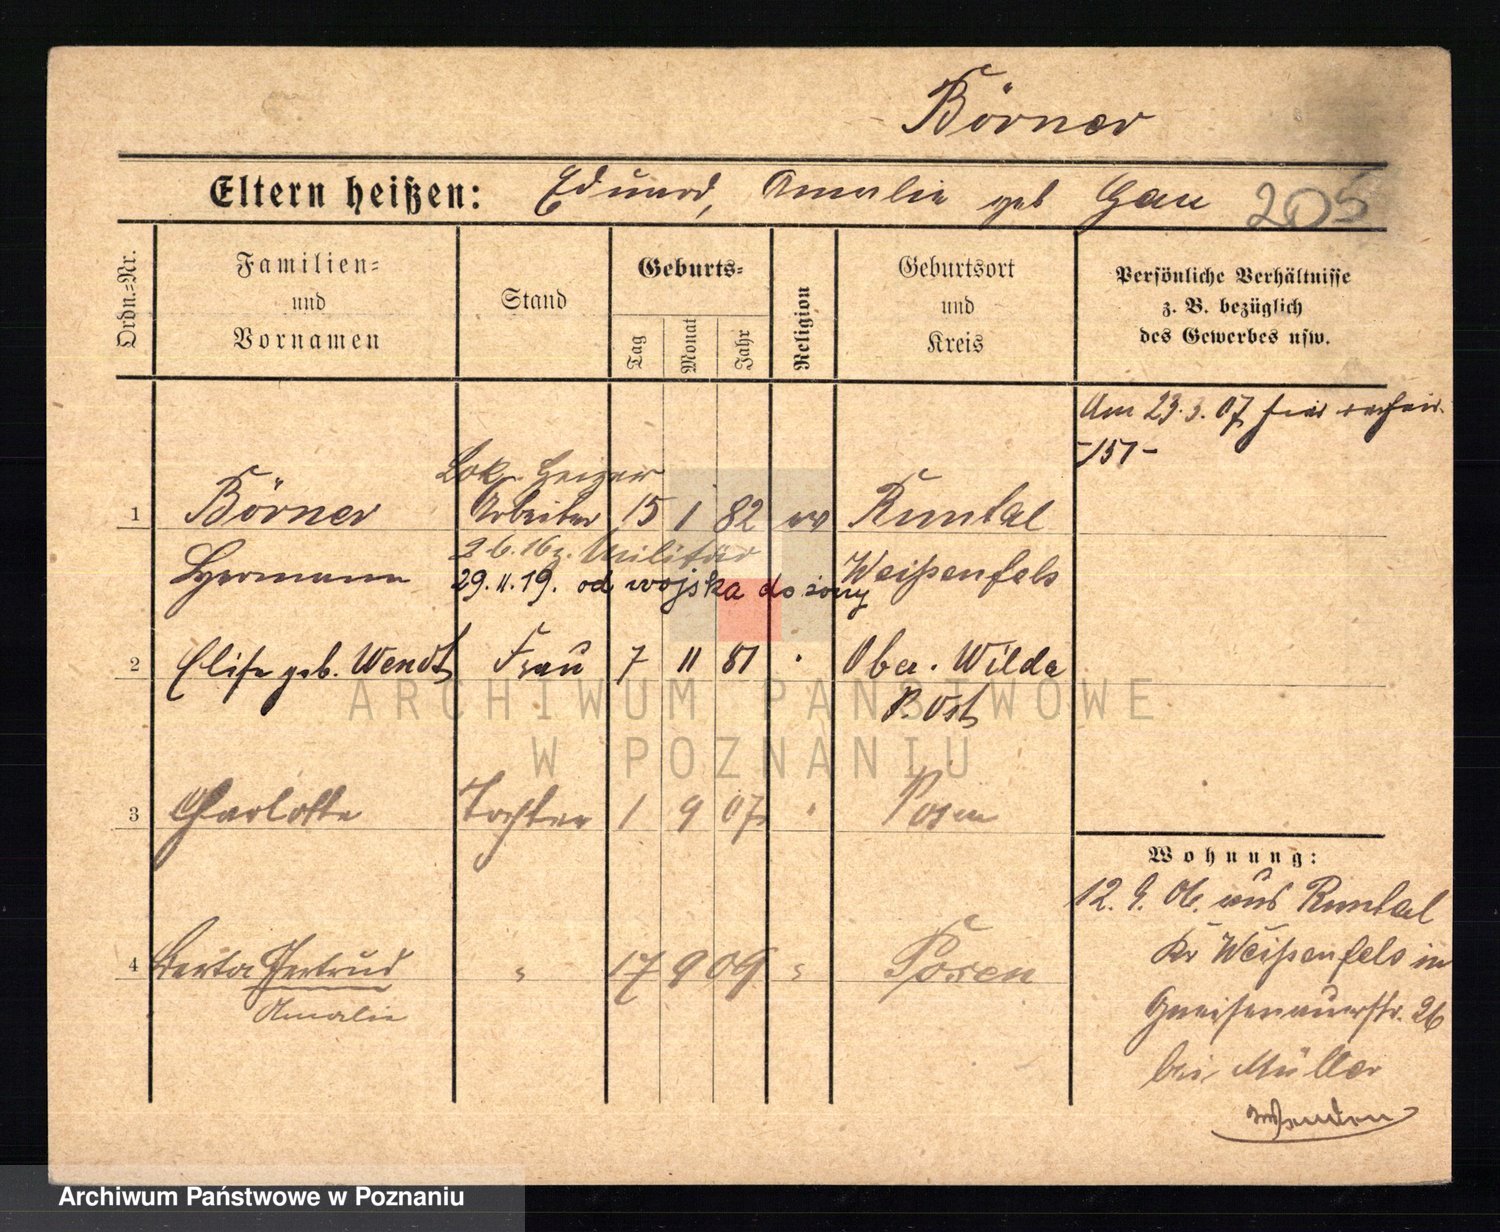 Börner
Eltern heißen: Eduard, Amalie geb Gau 205
Ordn.=Nr.
Familien=
und
Vornamen
Stand
Geburts=
Tag
Monat
Jahr
Religion
Geburtsort
und
Kreis
Persönliche Verhältnisse
z. B. bezüglich
des Gewerbes usw.
Am 23.3.07
-151-
Lok. Heizer
1 Börner Arbeiter 15 1 82 ev Runtal
Militär
Hermann Weißenfels
29.11.19. od wojska do żony
2 Elise geb. Wendt Frau 7 11 81 Ober. Wilda
P. Ost
3 Charlotte Tochter 1 9 07 " Posen
Wohnung:
12. 9. 06. aus Runtal
4 Berta Gertrud " 17 9 09 " Posen
Kr Weißenfels in
Amalie
Gneisenauerstr. 26
bei Müller
ARCHIWUM PAŃSTWOWE
W POZNANIU
Archiwum Państwowe w Poznaniu